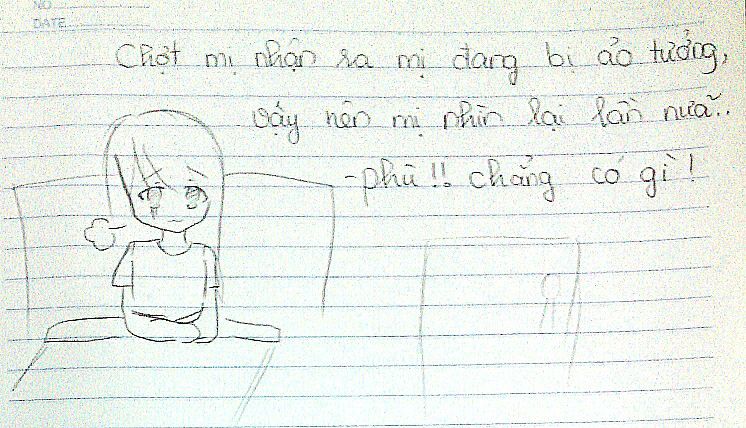 NO.
DATE
Chợt mị nhận ra mị đang bị ảo tưởng,
vậy nên mị nhìn lại lần nữa..
- phù !! chẳng có gì !